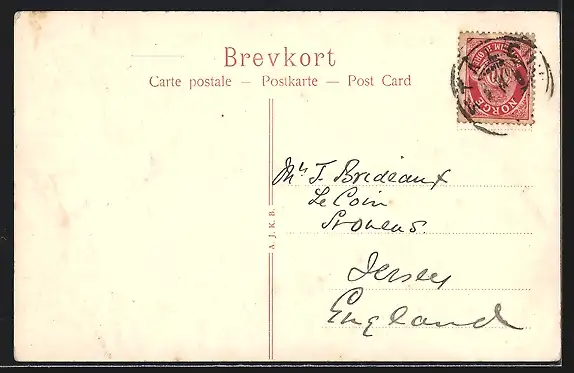 Brevkort
Carte postale — Postkarte — Post Card
NORGE
A. J. K. B.
Mrs J. Brideaux
Le Coin
St Ouens.
Jersey
England